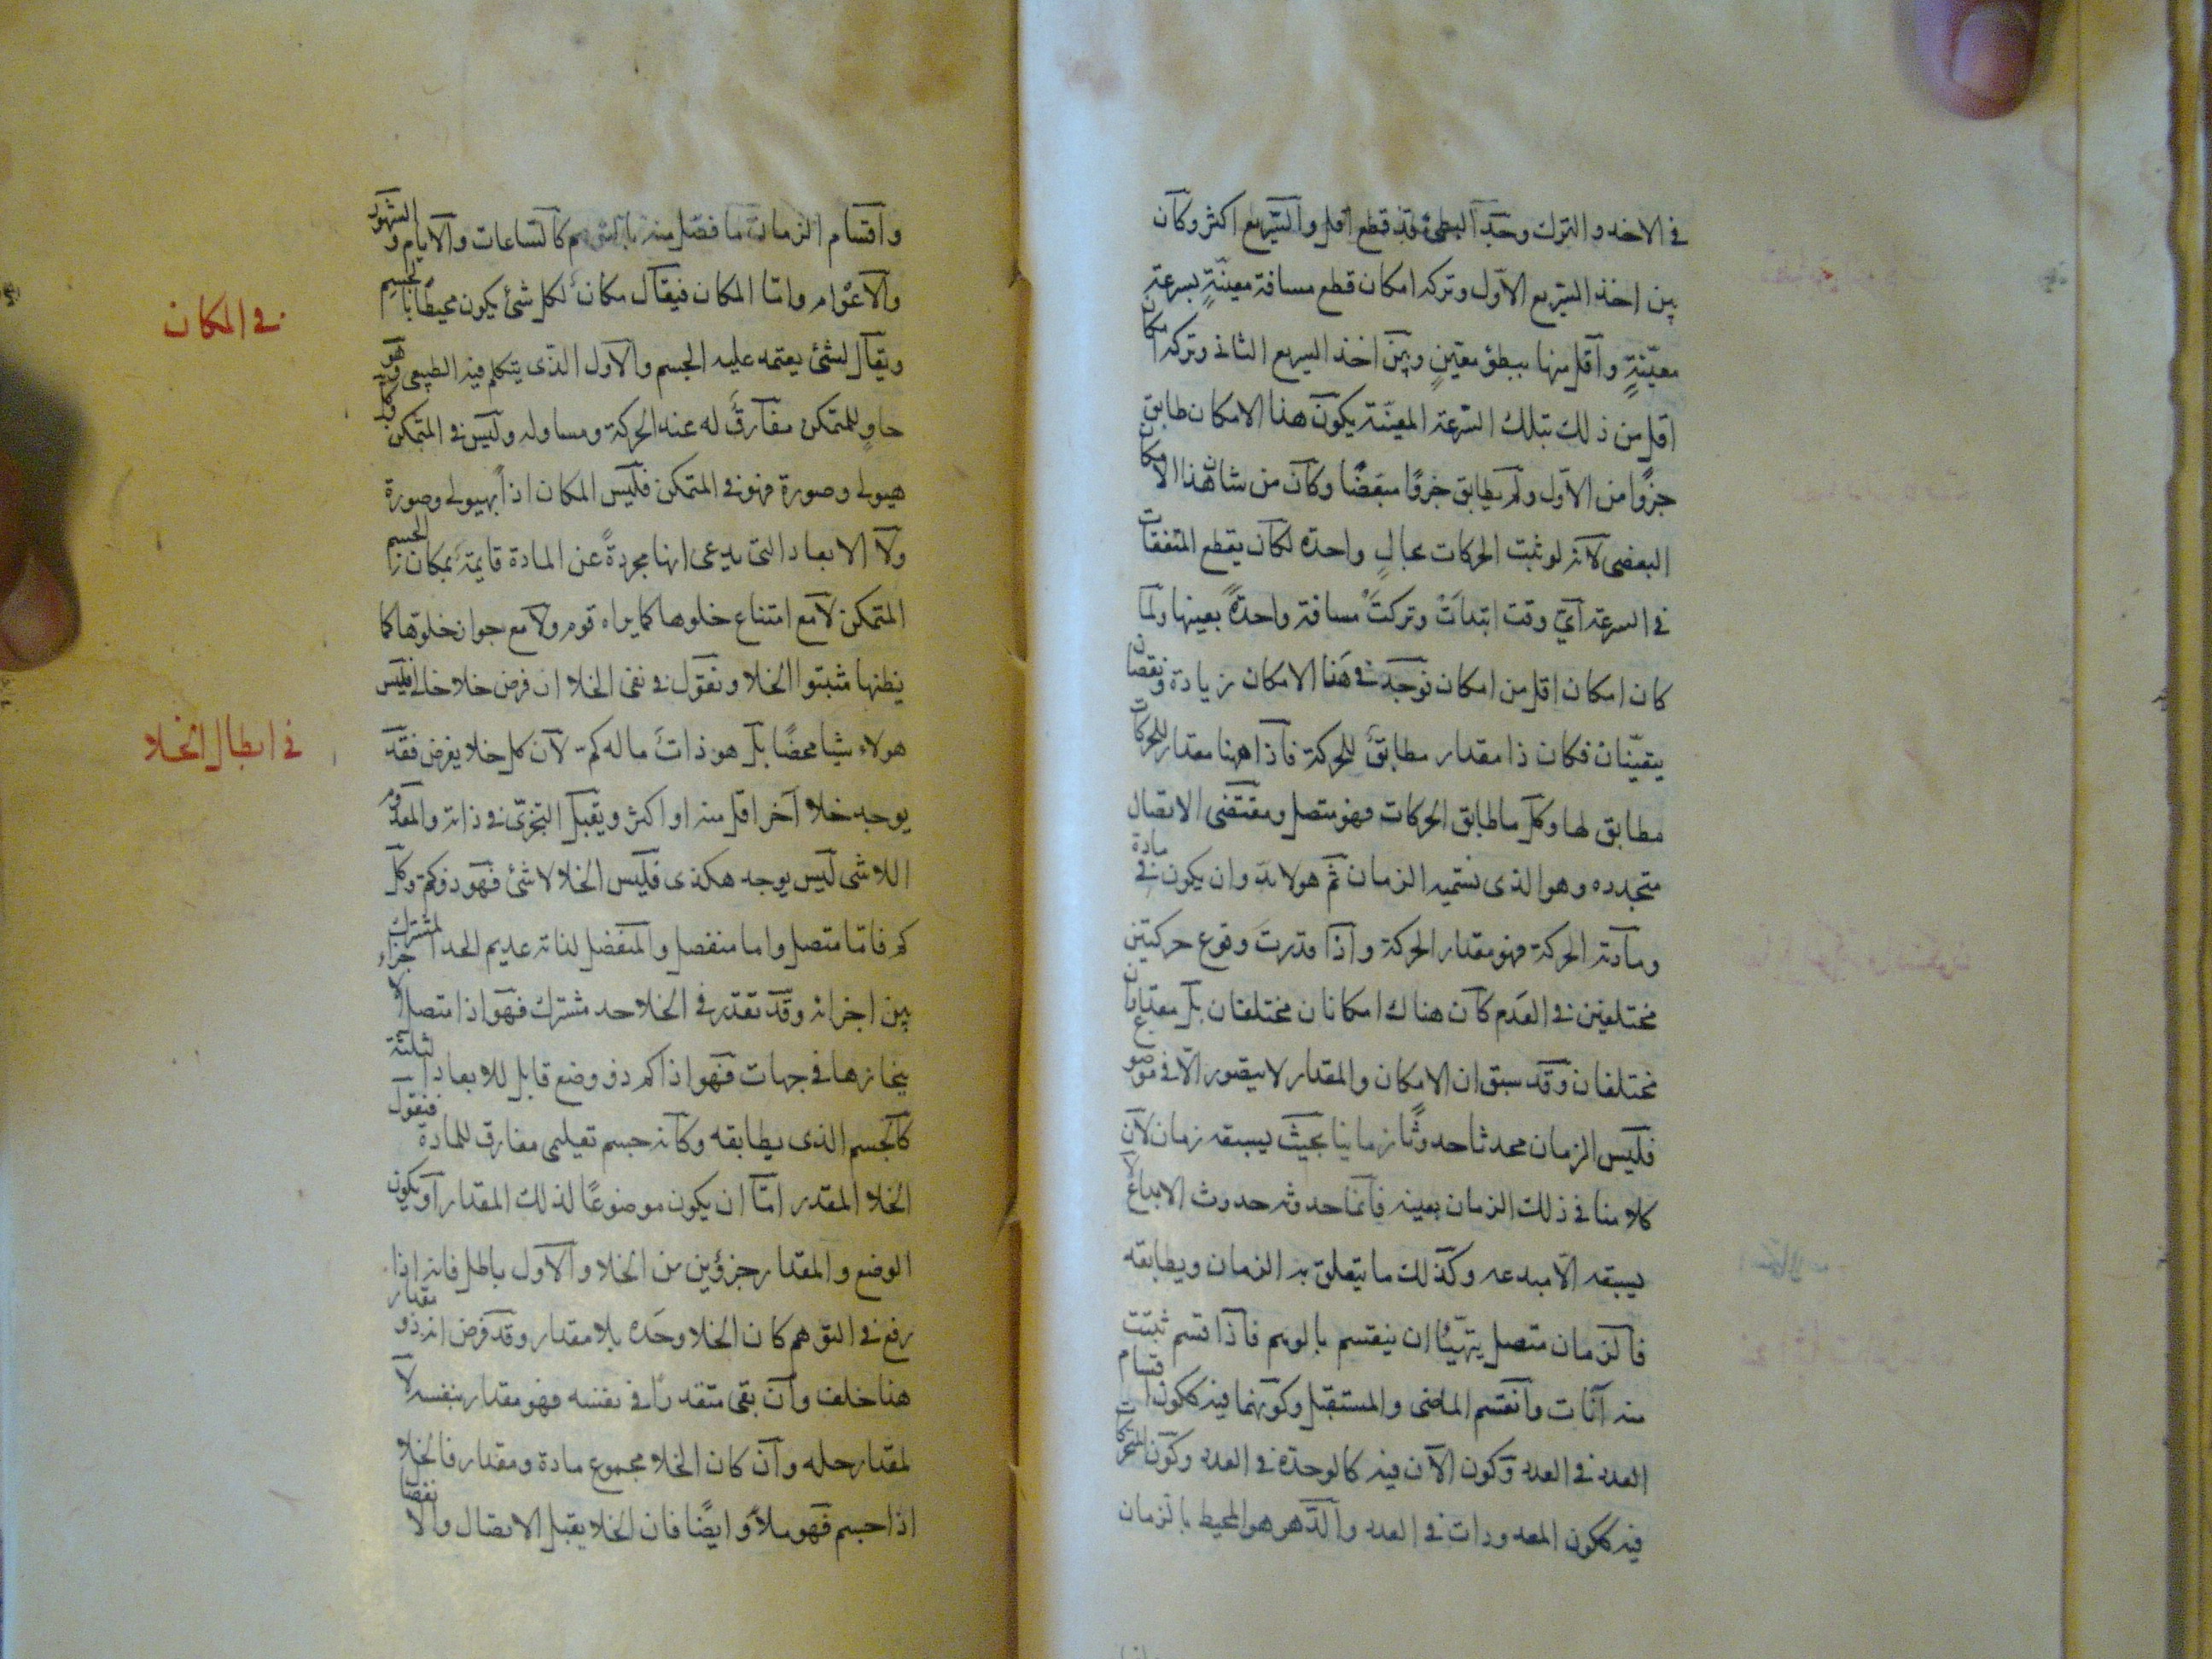 في الاخذ والترك وجد البطئ قد قطع اقل والسريع اكثر وكان
بين اخذ السريع الاول وتركه امكان قطع مسافة معينة بسرعة
معينة واقل منها ببطؤ معين وبين اخذ السريع الثانى وتركه امكان
اقل من ذلك بتلك السرعة المعينة يكون هذا الامكان طابق
جزؤا من الاول ولم يطابق جزؤا متقضيا وكان من شان هذا الامكان
التقضى لانه لو ثبت الحركات بحال واحده لكان يقطع المتفقات
في السرعة اي وقت ابتدات وتركت مسافة واحدة بعينها ولما
كان امكان اقل من امكان نوجد في هذا الامكان زيادة ونقصان
يتعينان فكان ذا مقدار مطابق للحركة فاذا ههنا مقدار للحركات
مطابق لها وكل ما طابق الحركات فهو متصل ومقتضى الاتصال
متجدده وهو الذى نسميه الزمان ثم هو لابد وان يكون في مادة
ومادته الحركة فهو مقدار الحركة واذا قدرت وقوع حركتين
مختلفتين في العدم كان هناك امكانان مختلفان بل مقداران
مختلفان وقد سبق ان الامكان والمقدار لا يتصور الا في موضوع
فليس الزمان محدثا حدوثا زمانيا بحيث يسبقه زمان لان
كلامنا في ذلك الزمان بعينه فانما حدوثه حدوث الابداع لا
يسبقه الا مبدعه وكذلك ما يتعلق به الزمان ويطابقه
فالزمان متصل يتهيأ ان ينقسم بالوهم فاذا قسم ثبتت
منه آنات وانقسم الماضى والمستقبل وكونهما فيه ككون اقسام
العدد في العدد وكون الآن فيه كالوحدة في العدد وكون المتحركات
فيه ككون المعدودات في العدد والدهر هو المحيط بالزمان
واقسام الزمان ما فصل منه بالتوهم كالساعات والايام والشهور
والاعوام واما المكان فيقال مكان لكل شئ يكون محيطا بالجسم
في المكان
ويقال لشئ يعتمد عليه الجسم والاول الذى يتكلم فيه الطبيعى وهو
حاو للمتمكن مفارق له عند الحركة ومساو له وليس في المتمكن وكل
هيولى وصورة فهو في المتمكن فليس المكان اذا بهيولى وصورة
ولا الابعاد التى يدعى انها مجردة عن المادة قايمة بمكان الجسم
المتمكن لا مع امتناع خلوها كما يراه قوم ولا مع جواز خلوها كما
يظنها مثبتوا الخلا ونقول في نفى الخلا ان فرض خلا خالى فليس
هولاء شيا محضا بل هو ذات ما له كم لان كل خلا يفرض فقد
في ابطال الخلا
يوجد خلا آخر اقل منه او اكثر ويقبل التجزى في ذاته والمعدوم
اللاشى ليس يوجد هكذى فليس الخلا لا شئ فهو ذو كم وكل
كم فاما متصل واما منفصل والمنفصل لذاته عديم الحد المشترك
بين اجزائه وقد تقدر في الخلا حد مشترك فهو اذا متصل الاجزاء
ينحازها في جهات فهو اذا كم ذو وضع قابل للابعاد الثلثة
كالجسم الذى يطابقه وكانه جسم تعليمى مفارق للمادة فنقول
الخلا المقدر اما ان يكون موضوعا لذلك المقدار او يكون
الوضع والمقدار جزؤين من الخلا والاول باطل فانه اذا
رفع في التوهم كان الخلا وحده بلا مقدار وقد فرض انه ذو مقدار
هذا خلف وان بقى متقدرا في نفسه فهو مقدار بنفسه لا
لمقدار حله وان كان الخلا مجموع مادة ومقدار فالخلا
اذا جسم فهو ملأ وايضا فان الخلا يقبل الاتصال والانفصا